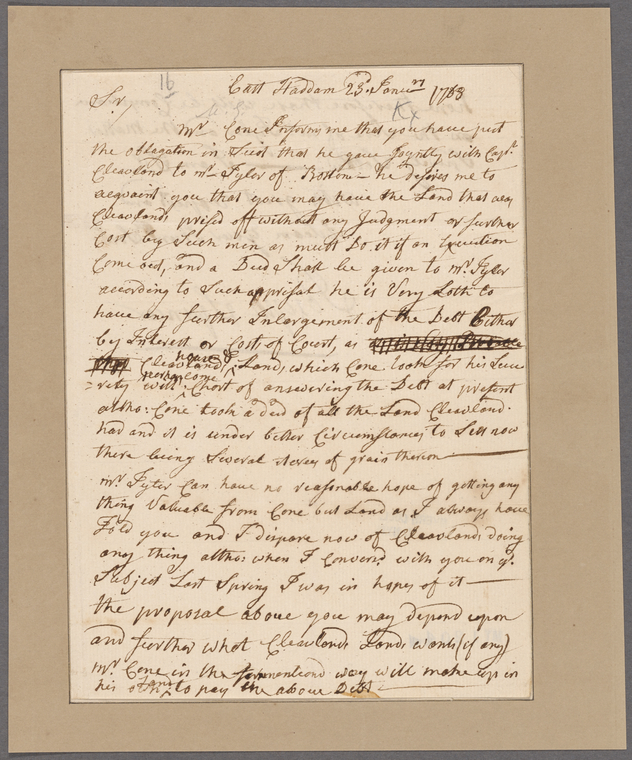 16
East Haddam 23d. Janury 1768
Sr/
Kx
Mr. Cone Informs me that you have put
the obligation in Suit that he gave Joyntly with Capt.
Cleavland to mr. Tyler of Boston — he Desires me to
acquaint you that you may have the Land that was
Cleavlands prised off without any Judgment or further
Cost by Such men as must Do it if an Execution
Come out, and a Deed Shall be given to mr. Tyler
according to Such apprisal he is Very Loth to
have any further Inlargement of the Debt Either
by Interest or Cost of Court, as
Cleavlands house & Land, which Cone took for his Secu
=rity will perhaps come Short of answering the Debt at present
altho: Cone took a deed of all the Land Cleavland
had and it is under better Circumstances to Sell now
there being Several Acres of grain thereon
mr. Tyler Can have no reasonable hope of getting any
thing Valuable from Cone but Land as I always have
Told you and I dispare now of Cleavlands doing
any thing altho: when I Convers'd with you on ye.
Subject Last Spring I was in hopes of it —
the proposal above you may Depend upon
and further what Cleavlands Lands wants (if any)
mr. Cone in the forementioned way will make up in
his own Land to pay the above Debt —